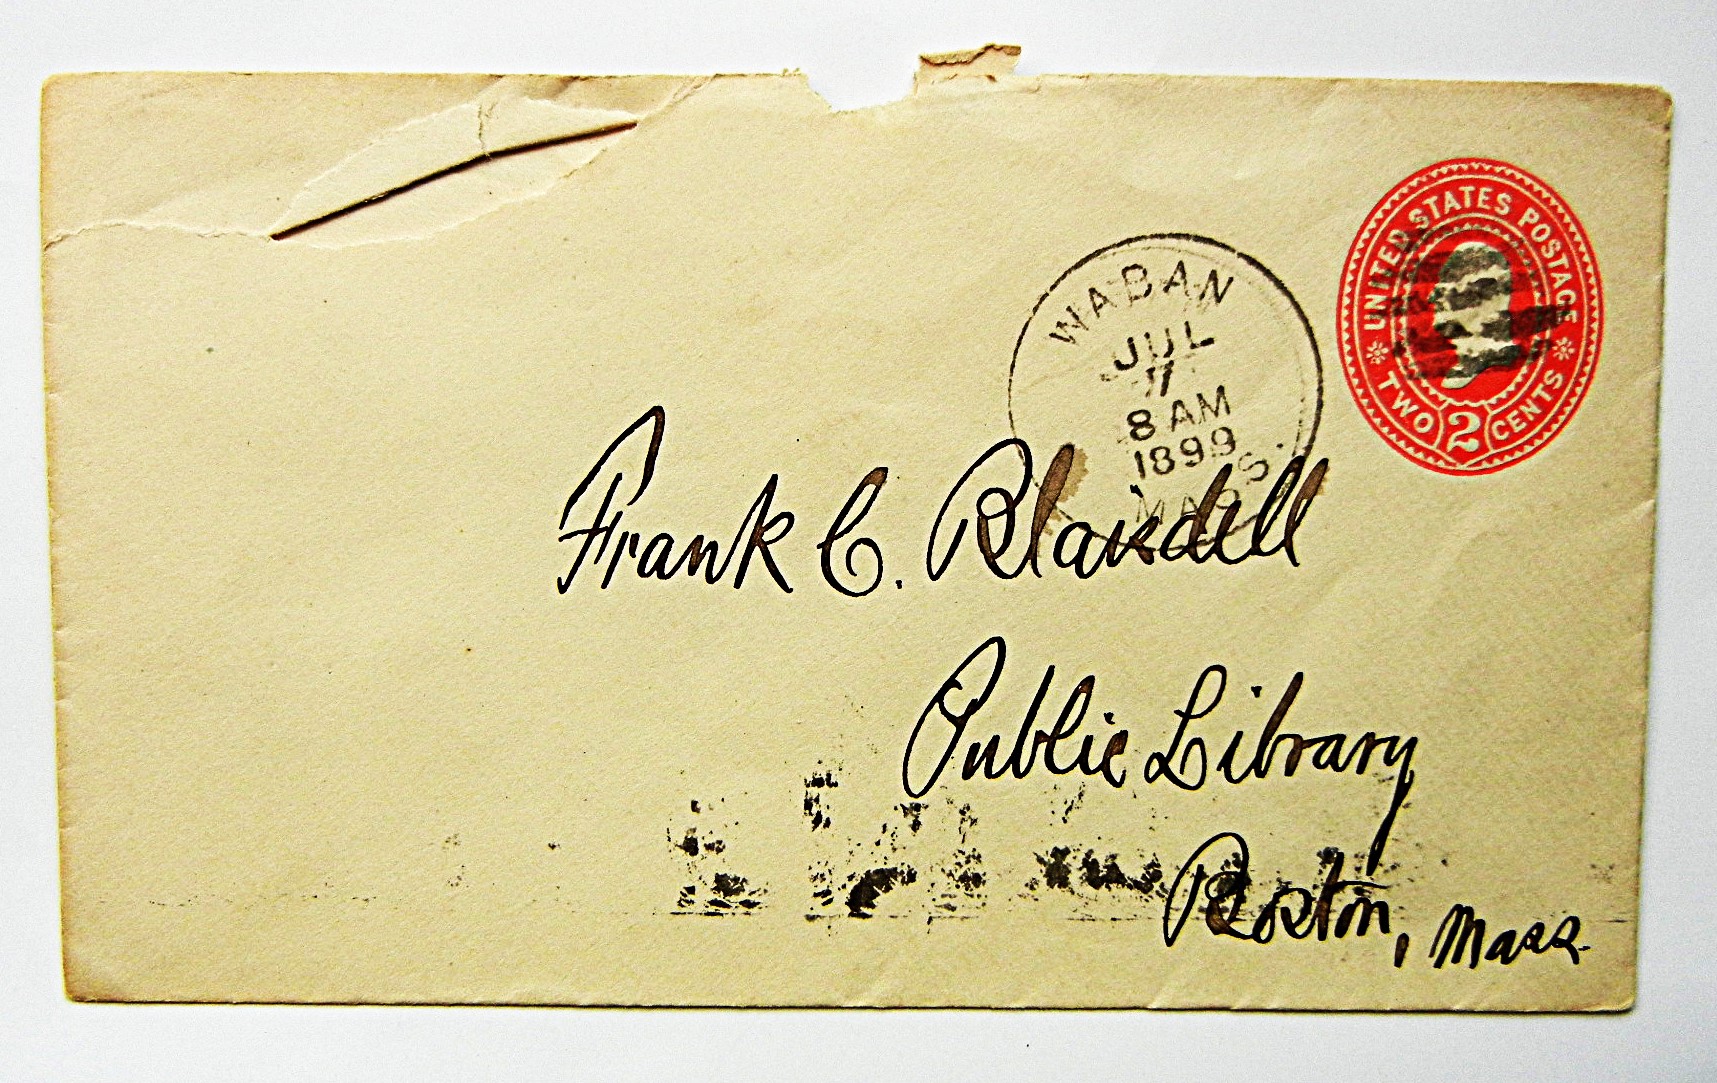 UNITED STATES POSTAGE
TWO 2 CENTS
WABAN
JUL
8 AM
1899
MASS.
Frank C. Blaisdell
Public Library
Boston, Mass.